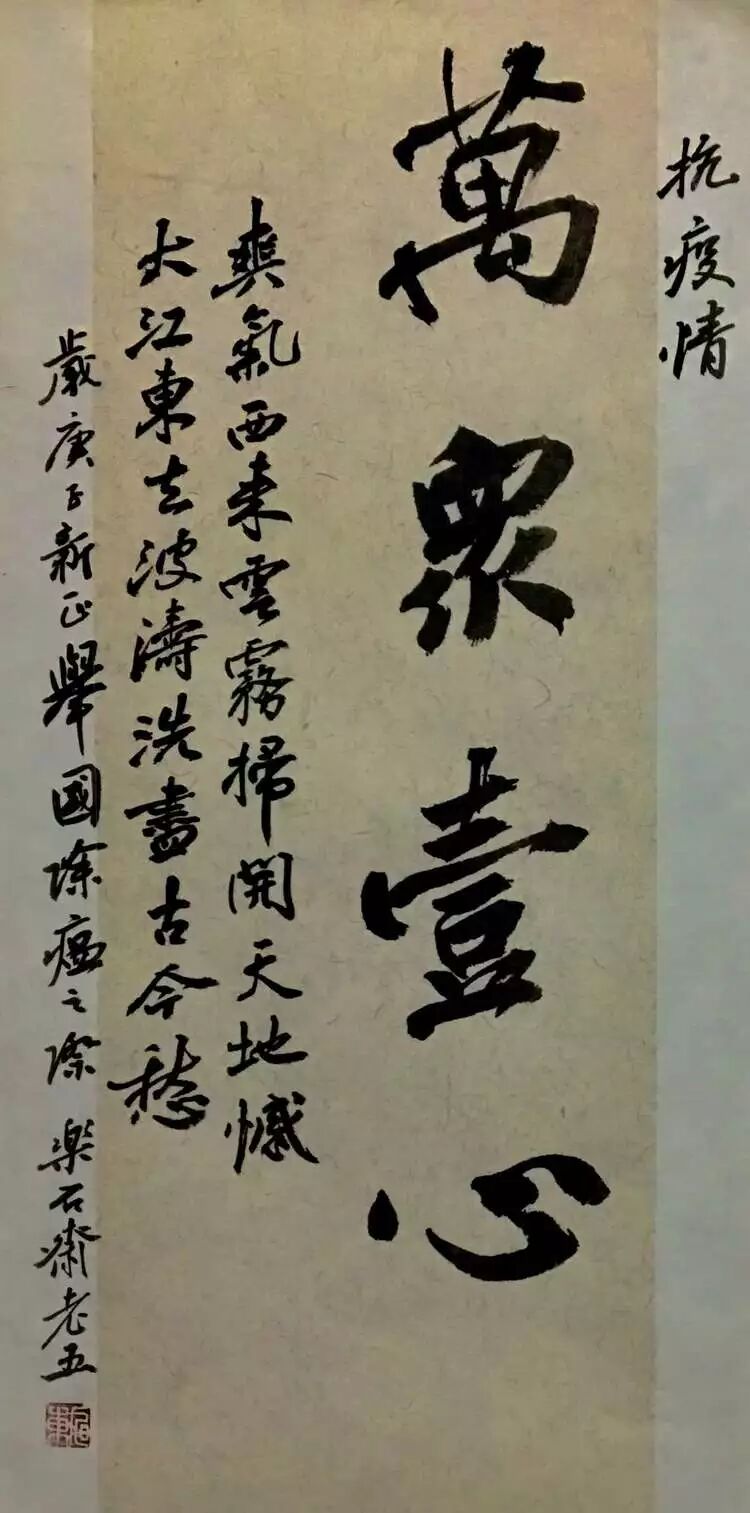 抗疫情
萬衆壹心
爽氣西來雲霧掃開天地憾
大江東去波濤洗盡古今愁
歲庚子新正舉國除瘟之際 樂石齋老五